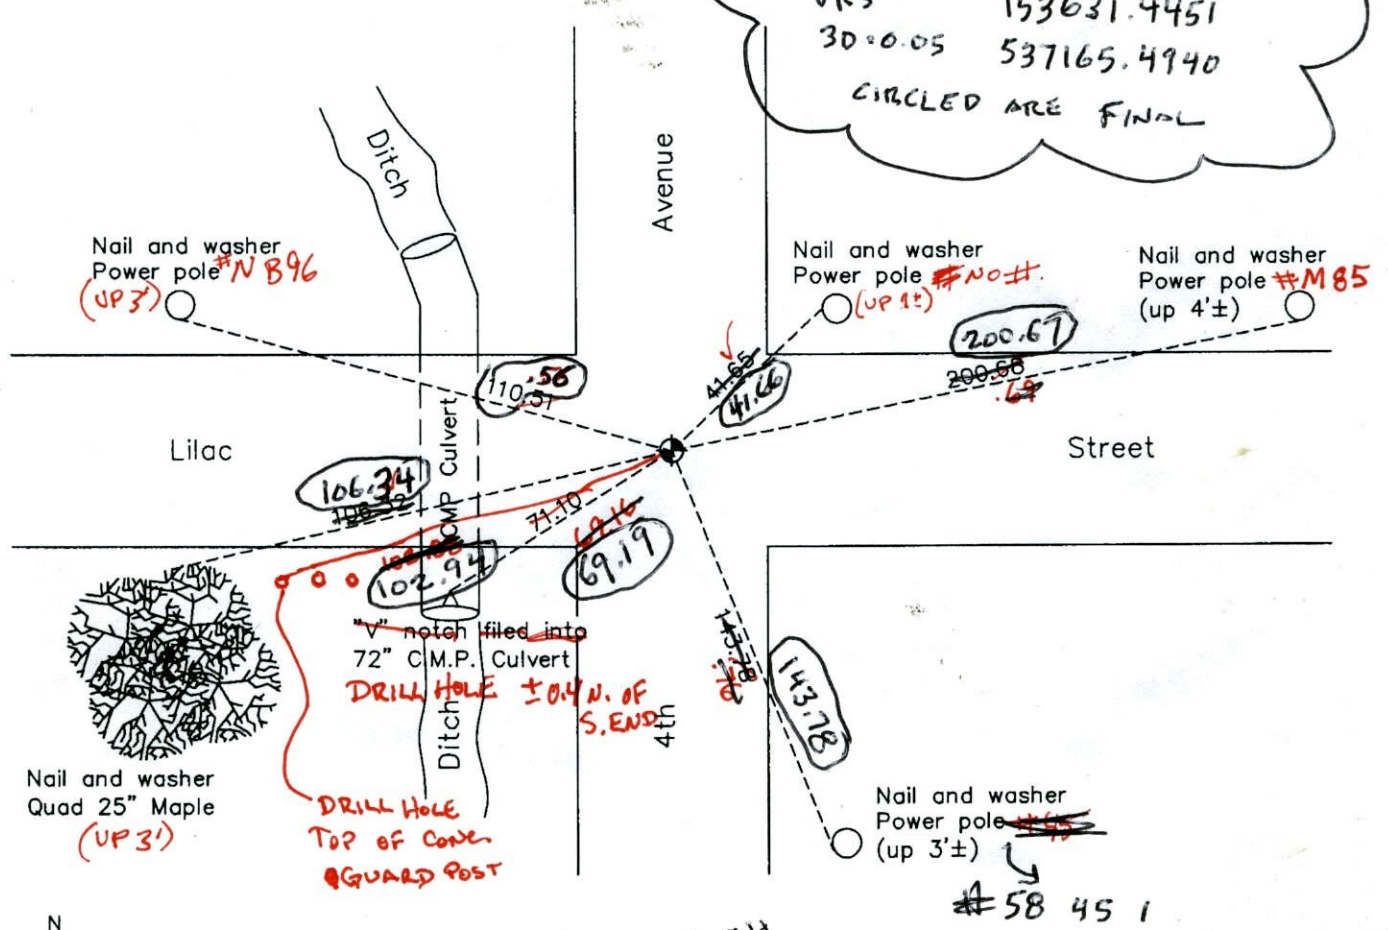 153631.4451
3D=0.05 537165.4940
CIRCLED ARE FINAL
Ditch
Avenue
Nail and washer
Power pole #NB96
(UP 3')
Nail and washer
Power pole # NO #.
(UP 1±)
Nail and washer
Power pole #M85
(up 4'±)
200.67
200.68
.69
41.65
41.66
110.51
.56
Lilac
CMP Culvert
Street
106.34
106.32
71.10
69.16
69.19
102.94
"V" notch filed into
72" C.M.P. Culvert
DRILL HOLE ±0.4 N. OF
S. END
143.78
143.78
4th
Ditch
Nail and washer
Quad 25" Maple
(UP 3')
DRILL HOLE
TOP OF CONC.
GUARD POST
Nail and washer
Power pole
(up 3'±)
#58 45 1
N